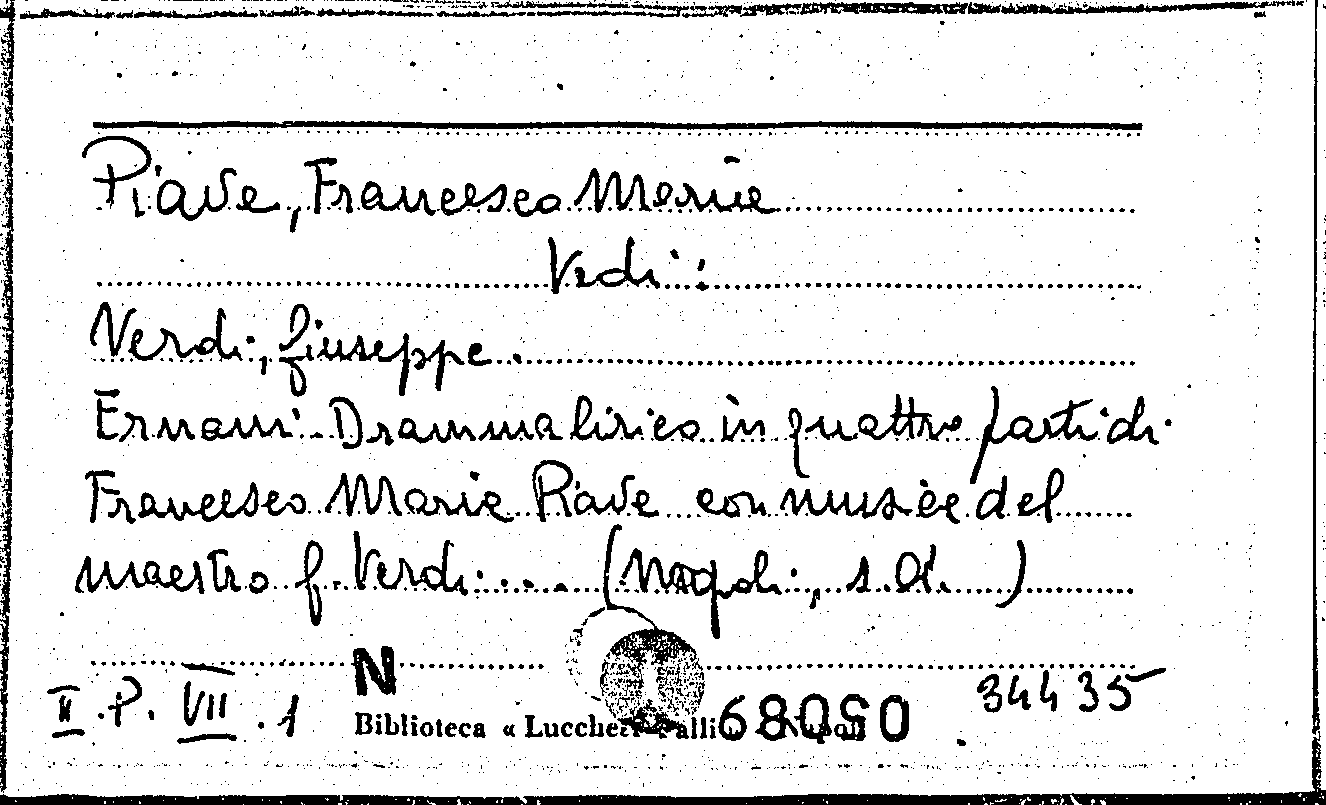 Piave, Francesco Maria
Vedi:
Verdi, Giuseppe.
Ernani. Dramma lirico in quattro parti di
Francesco Maria Piave con musica del
maestro G. Verdi.... (Napoli, s.d. )
N
II.P.VII.1
Biblioteca « Lucchesi Palli » - Napoli
34435